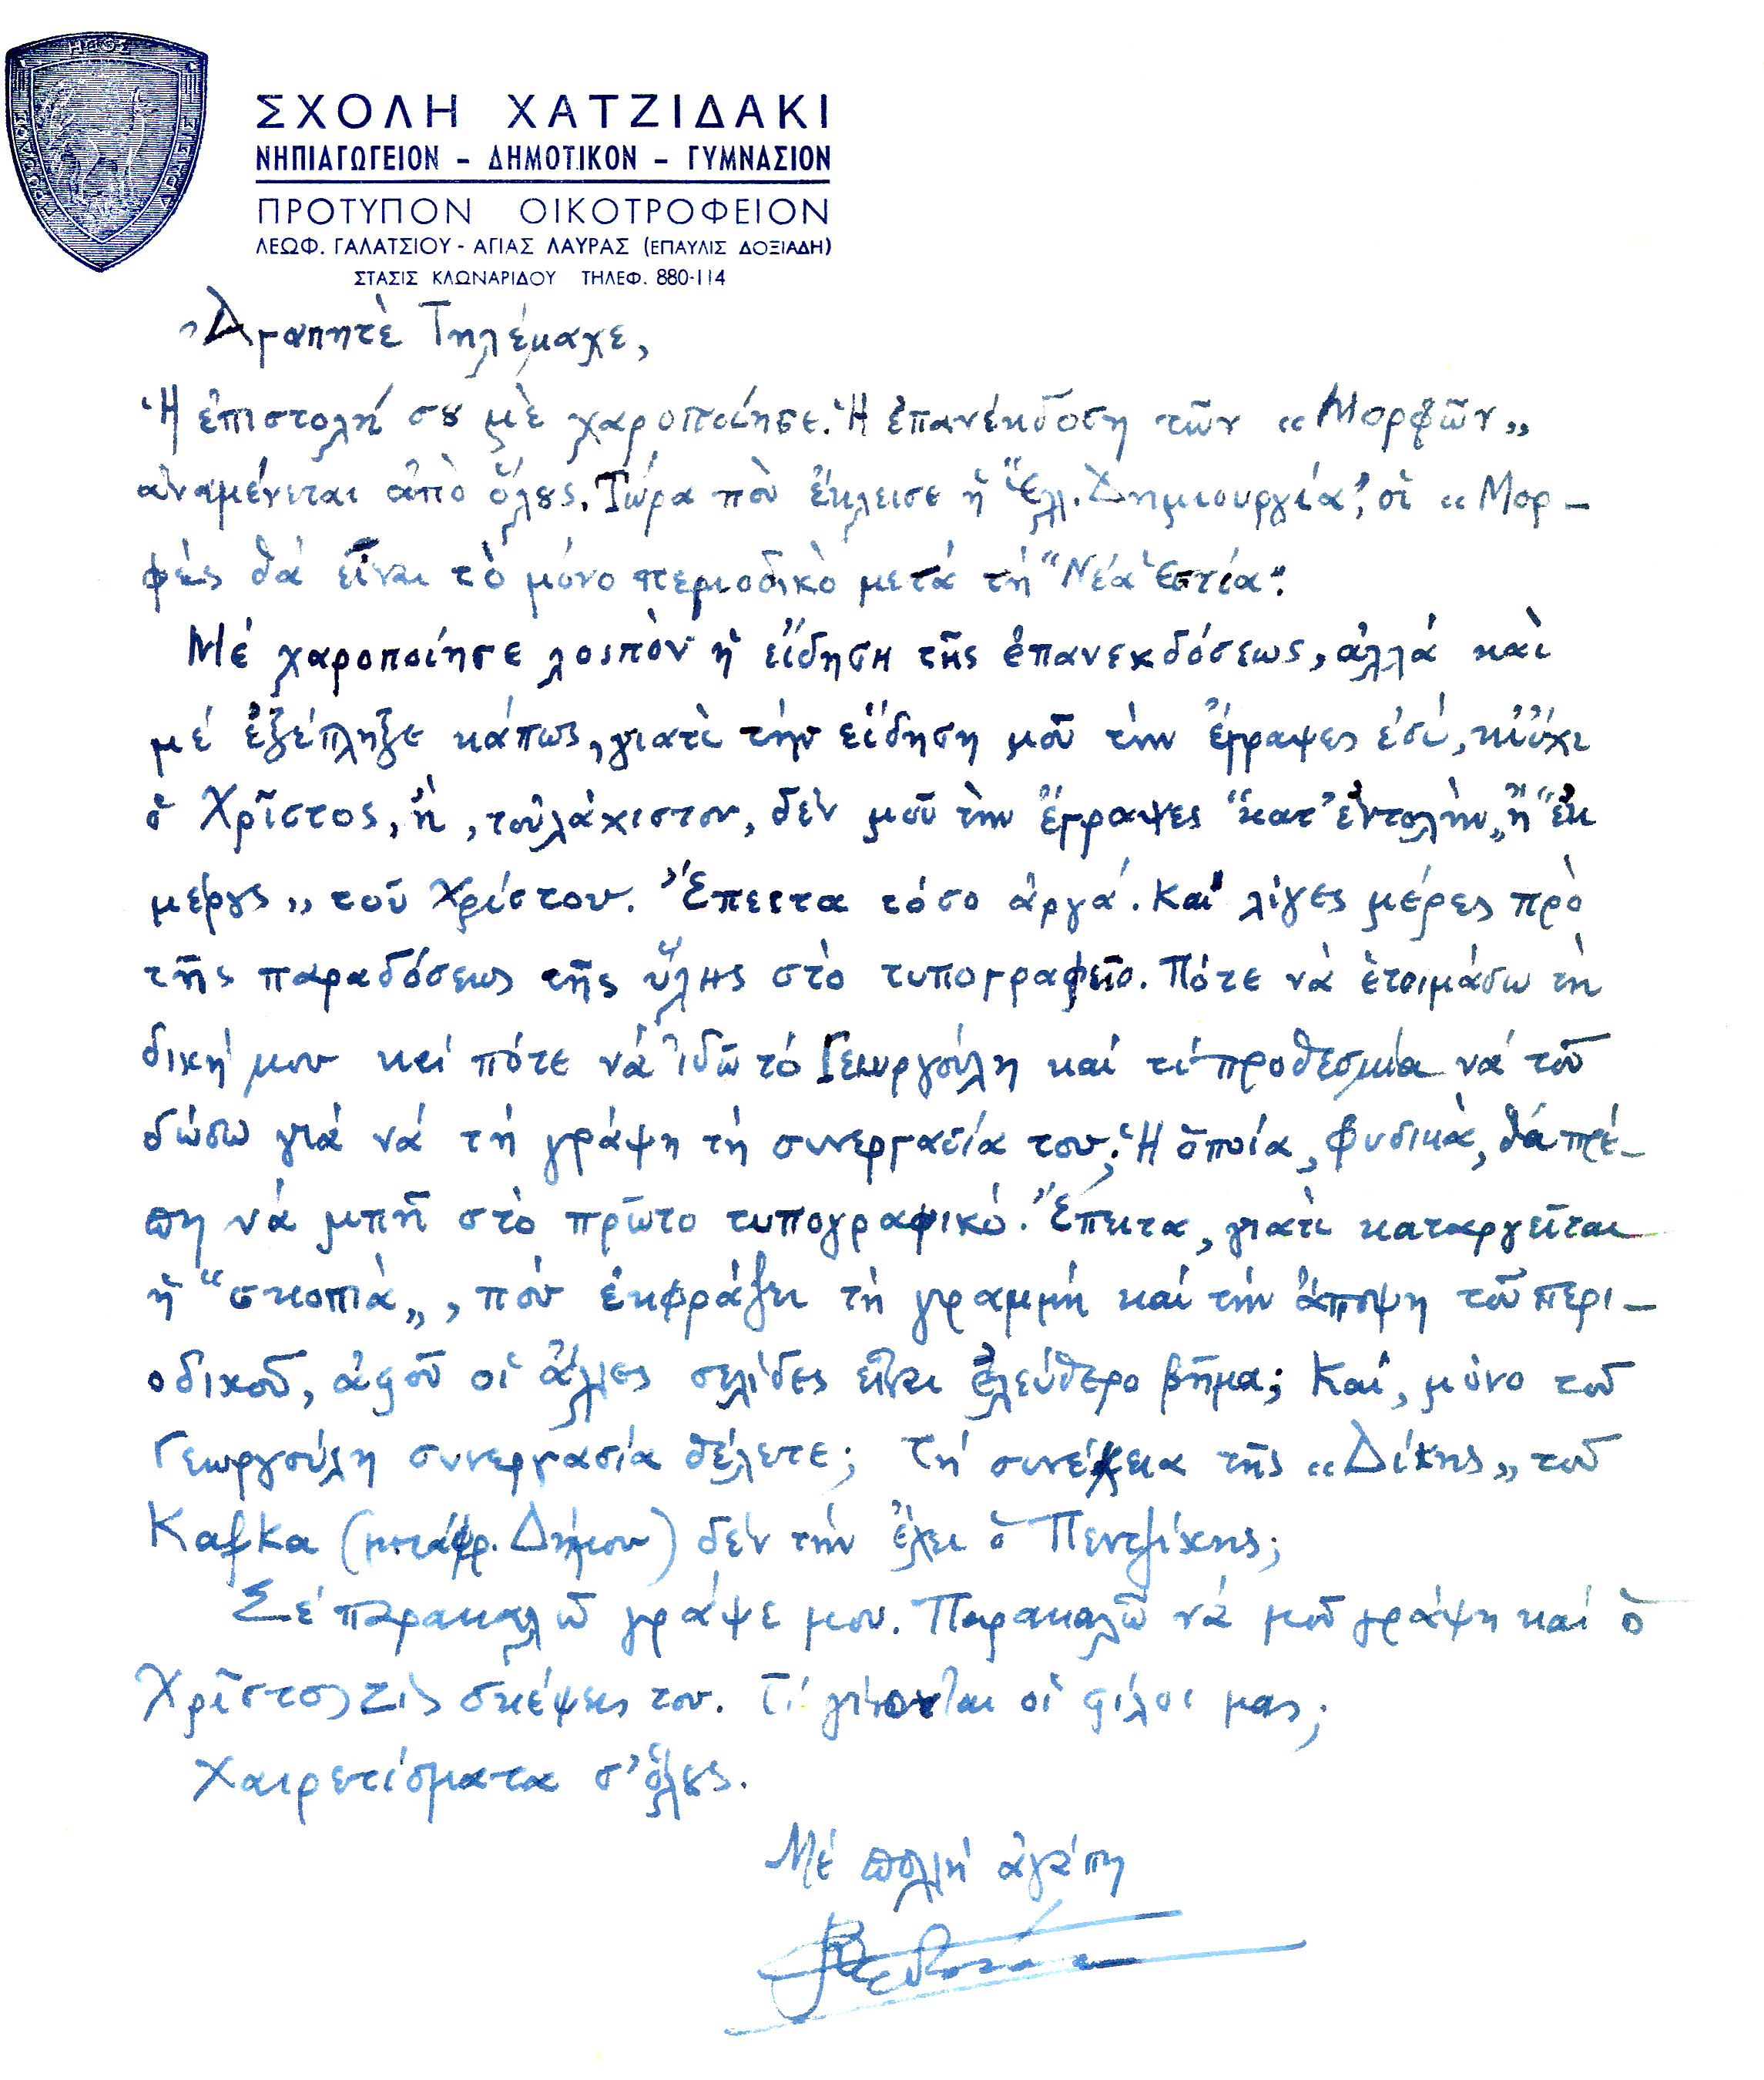 ΗΘΟΣ
ΠΡΟΟΔΟΣ
ΔΡΑΣΙΣ
ΣΧΟΛΗ ΧΑΤΖΙΔΑΚΙ
ΝΗΠΙΑΓΩΓΕΙΟΝ - ΔΗΜΟΤΙΚΟΝ - ΓΥΜΝΑΣΙΟΝ
ΠΡΟΤΥΠΟΝ ΟΙΚΟΤΡΟΦΕΙΟΝ
ΛΕΩΦ. ΓΑΛΑΤΣΙΟΥ - ΑΓΙΑΣ ΛΑΥΡΑΣ (ΕΠΑΥΛΙΣ ΔΟΞΙΑΔΗ)
ΣΤΑΣΙΣ ΚΛΩΝΑΡΙΔΟΥ ΤΗΛΕΦ. 880-114
Ἀγαπητὲ Τηλέμαχε,
Ἡ ἐπιστολή σȣ μὲ χαροποίησε. Ἡ ἐπανέκδοση τῶν «Μορφῶν»
ἀναμένεται ἀπὸ ὅλȣς. Τώρα ποὺ ἔκλεισε ἡ "Ἑλλ. Δημιουργία", οἱ «Μορ-
φὲς θά εἶναι τὸ μόνο περιοδικὸ μετά τή "Νέα Ἑστία".
Μέ χαροποίησε λοιπὸν ἡ εἴδηση τῆς ἐπανεκδόσεως, ἀλλά καὶ
μέ ἐξέπληξε κάπως, γιατὶ τήν εἴδηση μοῦ τὴν ἔγραψες ἐσύ, κι ὄχι
ὁ Χρῖστος, ἤ, τοὐλάχιστον, δέν μοῦ τὴν ἔγραψες "κατ' ἐντολὴν„ ἢ "ἐκ
μέρȣς„ τοῦ Χρίστου. Ἔπειτα τόσο ἀργά. Καί λίγες μέρες πρὸ
τῆς παραδόσεως τῆς ὕλης στὸ τυπογραφεῖο. Πότε νὰ ἑτοιμάσω τὴ
δική μου καί πότε νά ἰδῶ τό Γεωργούλη καί τί προθεσμία νά τοῦ
δώσω γιά νά τή γράψη τή συνεργασία του; Ἡ ὁποία, φυσικὰ, θά πρέ-
πη νά μπῆ στὸ πρῶτο τυπογραφικό. Ἔπειτα, γιατὶ καταργεῖται
ἡ "σκοπιὰ„, πού ἐκφράζει τὴ γραμμή καί τήν ἄποψη τοῦ περι-
οδικοῦ, ἀφοῦ οἱ ἄλλες σελίδες εἶναι ἐλεύθερο βῆμα; Καί, μόνο τοῦ
Γεωργούλη συνεργασία θέλετε; Τή συνέχεια τῆς «Δίκης» τοῦ
Kafka (μετάφρ. Δήμου) δέν τήν ἔχει ὁ Πεντζίκης;
Σέ παρακαλῶ γράψε μου. Παρακαλῶ νά μοῦ γράψη καί ὁ
Χρῖστος τὶς σκέψεις του. Τί γίνονται οἱ φίλοι μας;
Χαιρετίσματα σ' ὅλȣς.
Μέ πολλή ἀγάπη